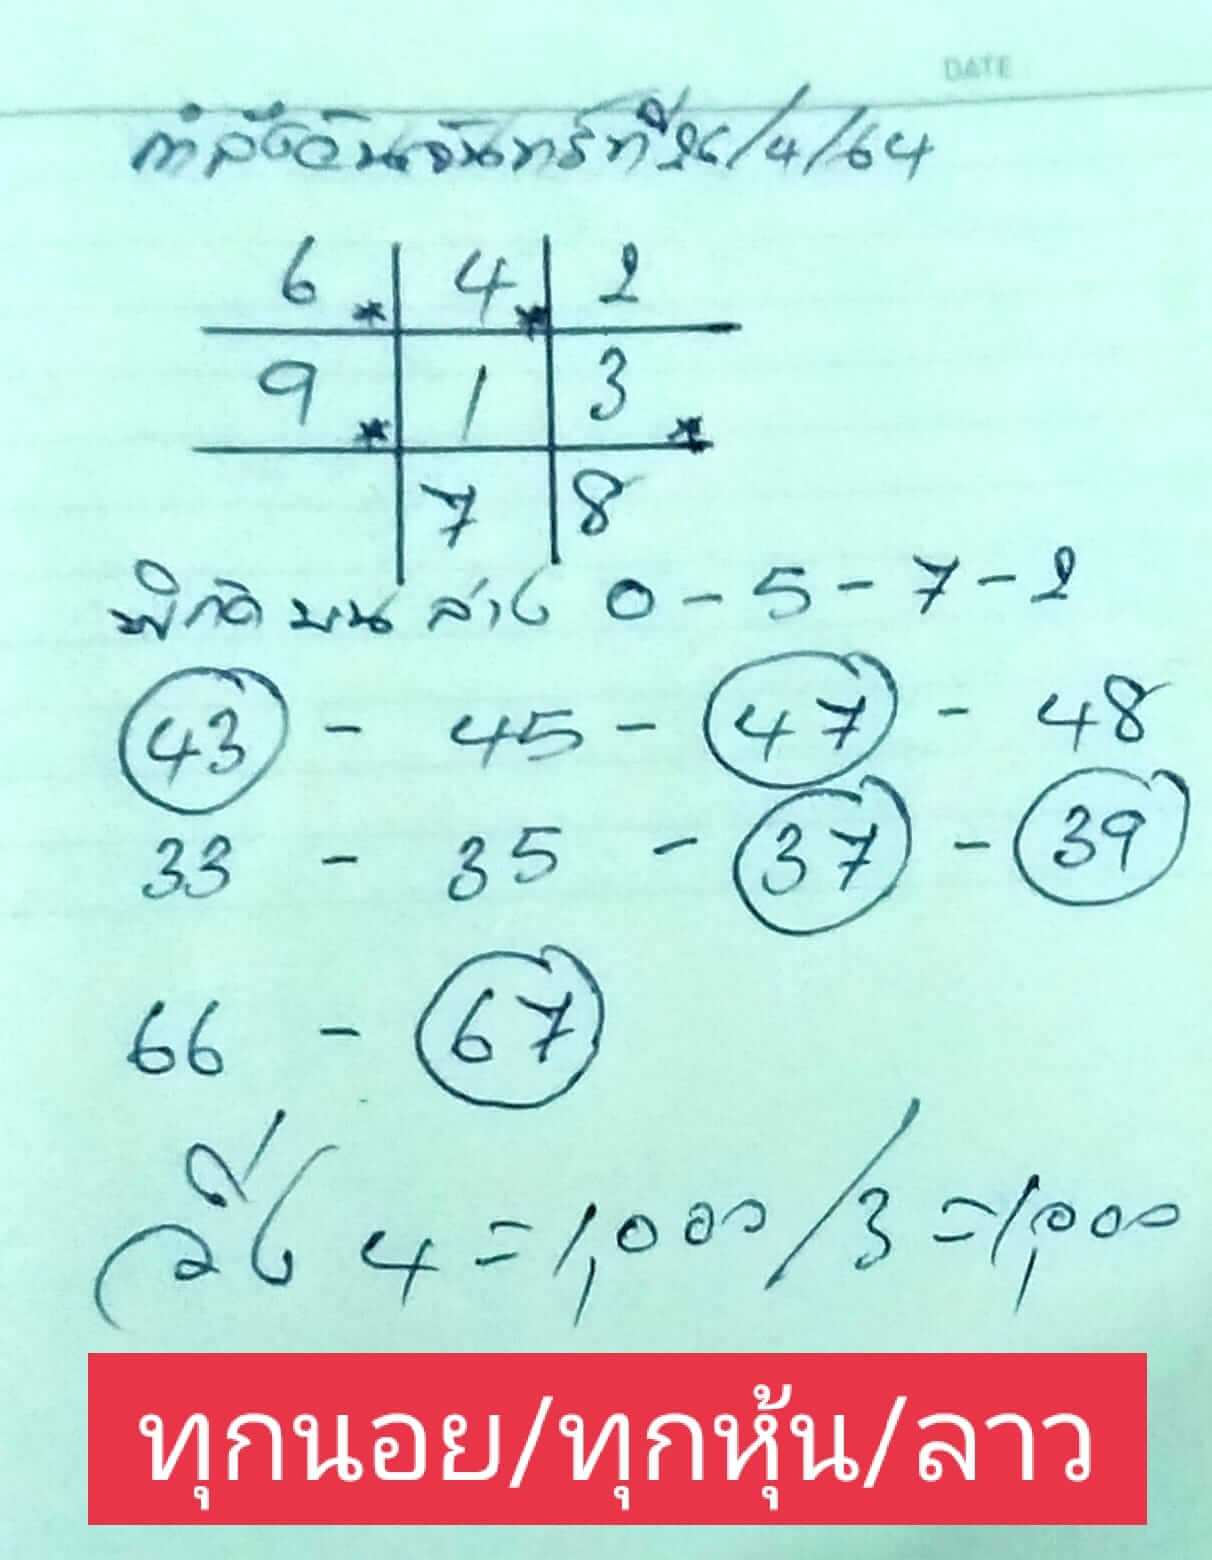 DATE
กำลังวันจันทร์ที่ 26/4/64
6 4 2
9 1 3
7 8
พิกัด บน ล่าง 0 - 5 - 7 - 2
43 - 45 - 47 - 48
33 - 35 - 37 - 39
66 - 67
วิ่ง 4 = 1,000 / 3 = 1,000
ทุกนอย/ทุกหุ้น/ลาว